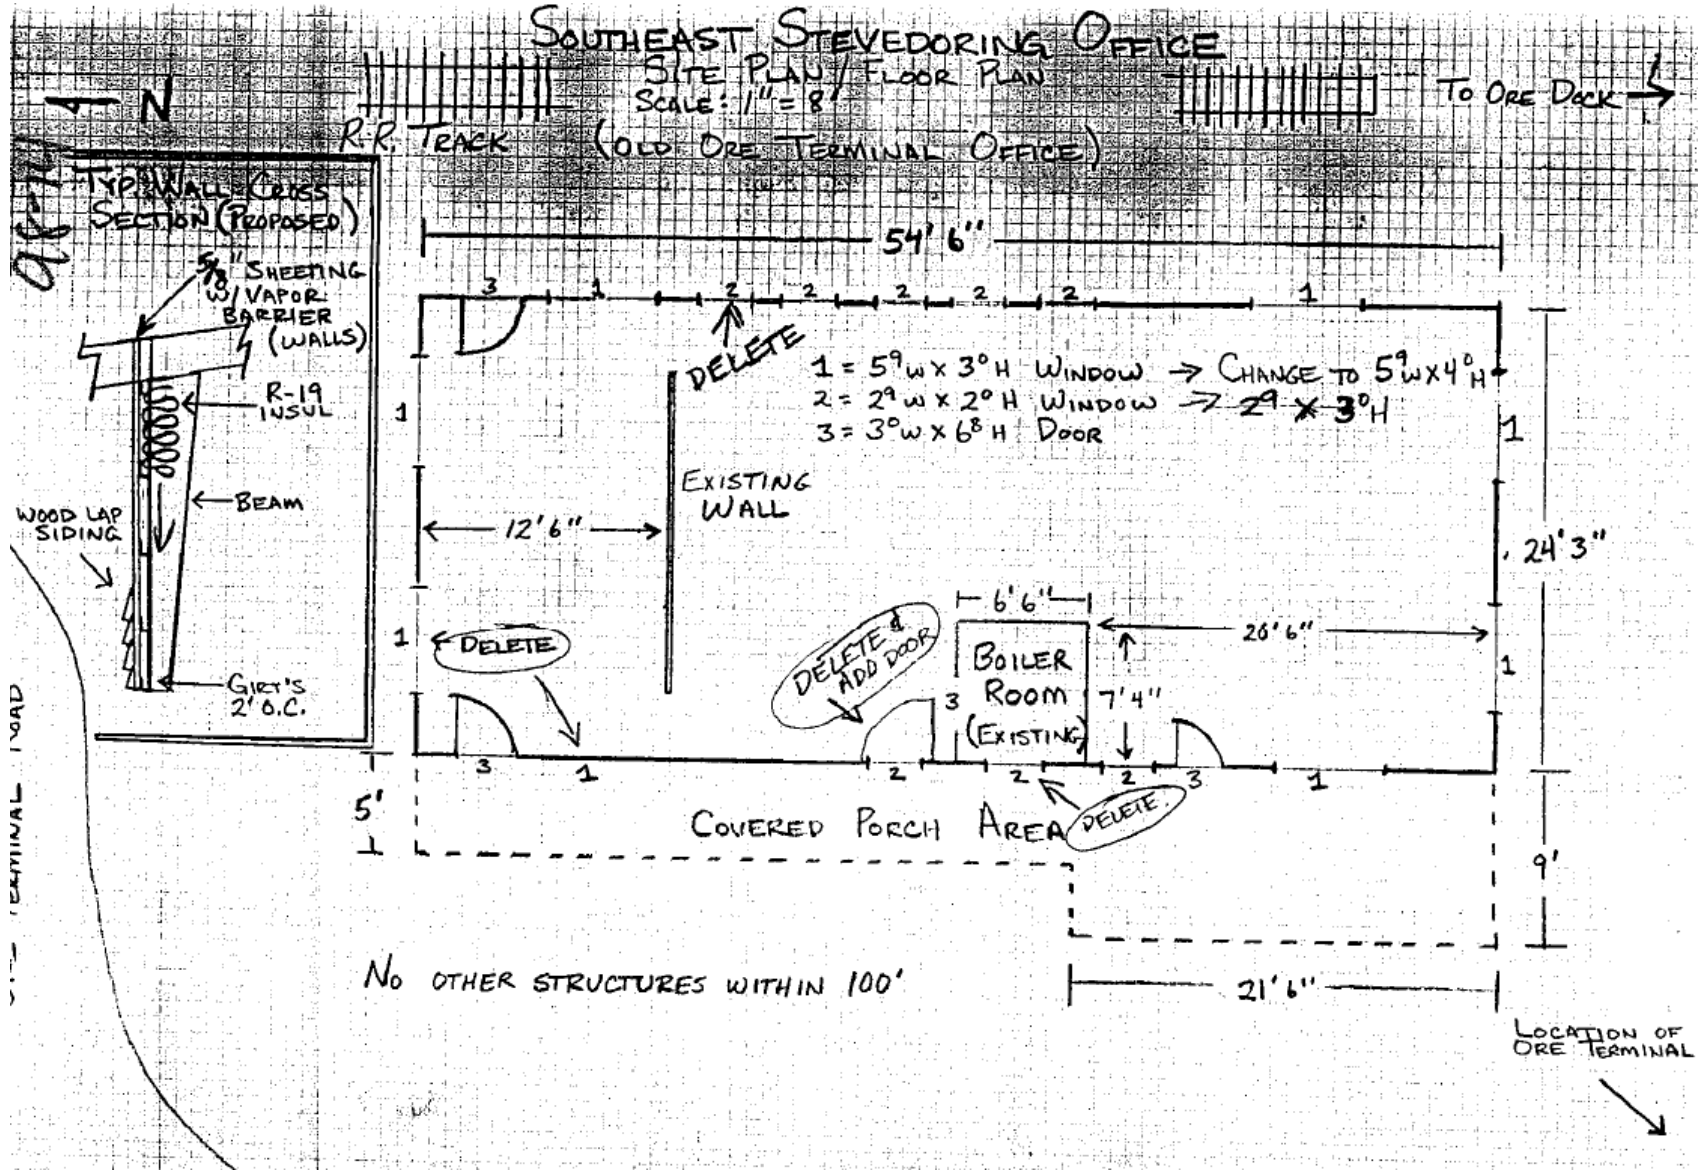 SOUTHEAST STEVEDORING OFFICE
SITE PLAN / FLOOR PLAN
SCALE: 1" = 8'
(OLD ORE TERMINAL OFFICE)
N
R.R. TRACK
TO ORE DOCK
TYP. WALL CROSS
SECTION (PROPOSED)
5/8" SHEETING
W/ VAPOR
BARRIER
(WALLS)
R-19
INSUL
BEAM
WOOD LAP
SIDING
GIRT'S
2' O.C.
TERMINAL ROAD
54' 6"
3 1 2 2 2 2 2 1
DELETE
1 = 5⁹W X 3⁰H WINDOW → CHANGE TO 5⁹W X 4⁰H
2 = 2⁹W X 2⁰H WINDOW → 2⁹ X 3⁰H
3 = 3⁰W X 6⁸H DOOR
1
1
EXISTING
WALL
12' 6"
24' 3"
6' 6"
1
DELETE
DELETE &
ADD DOOR
BOILER
ROOM
(EXISTING)
3
7' 4"
20' 6"
1
3 1 2 2 2 3 1
DELETE
5'
COVERED PORCH AREA
9'
NO OTHER STRUCTURES WITHIN 100'
21' 6"
LOCATION OF
ORE TERMINAL